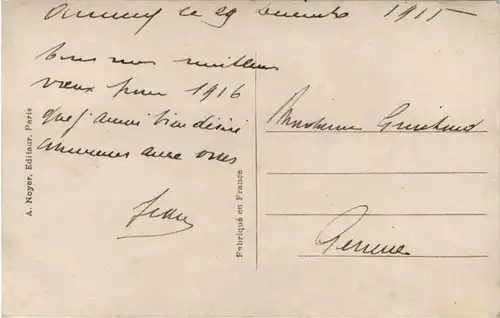 Annecy le 29 Décembre 1915
Tous nos meilleurs
vœux pour 1916
que j'aurai bien désiré
commencer avec vous
Jean
Monsieur
A. Noyer, Editeur, Paris
Fabriqué en France